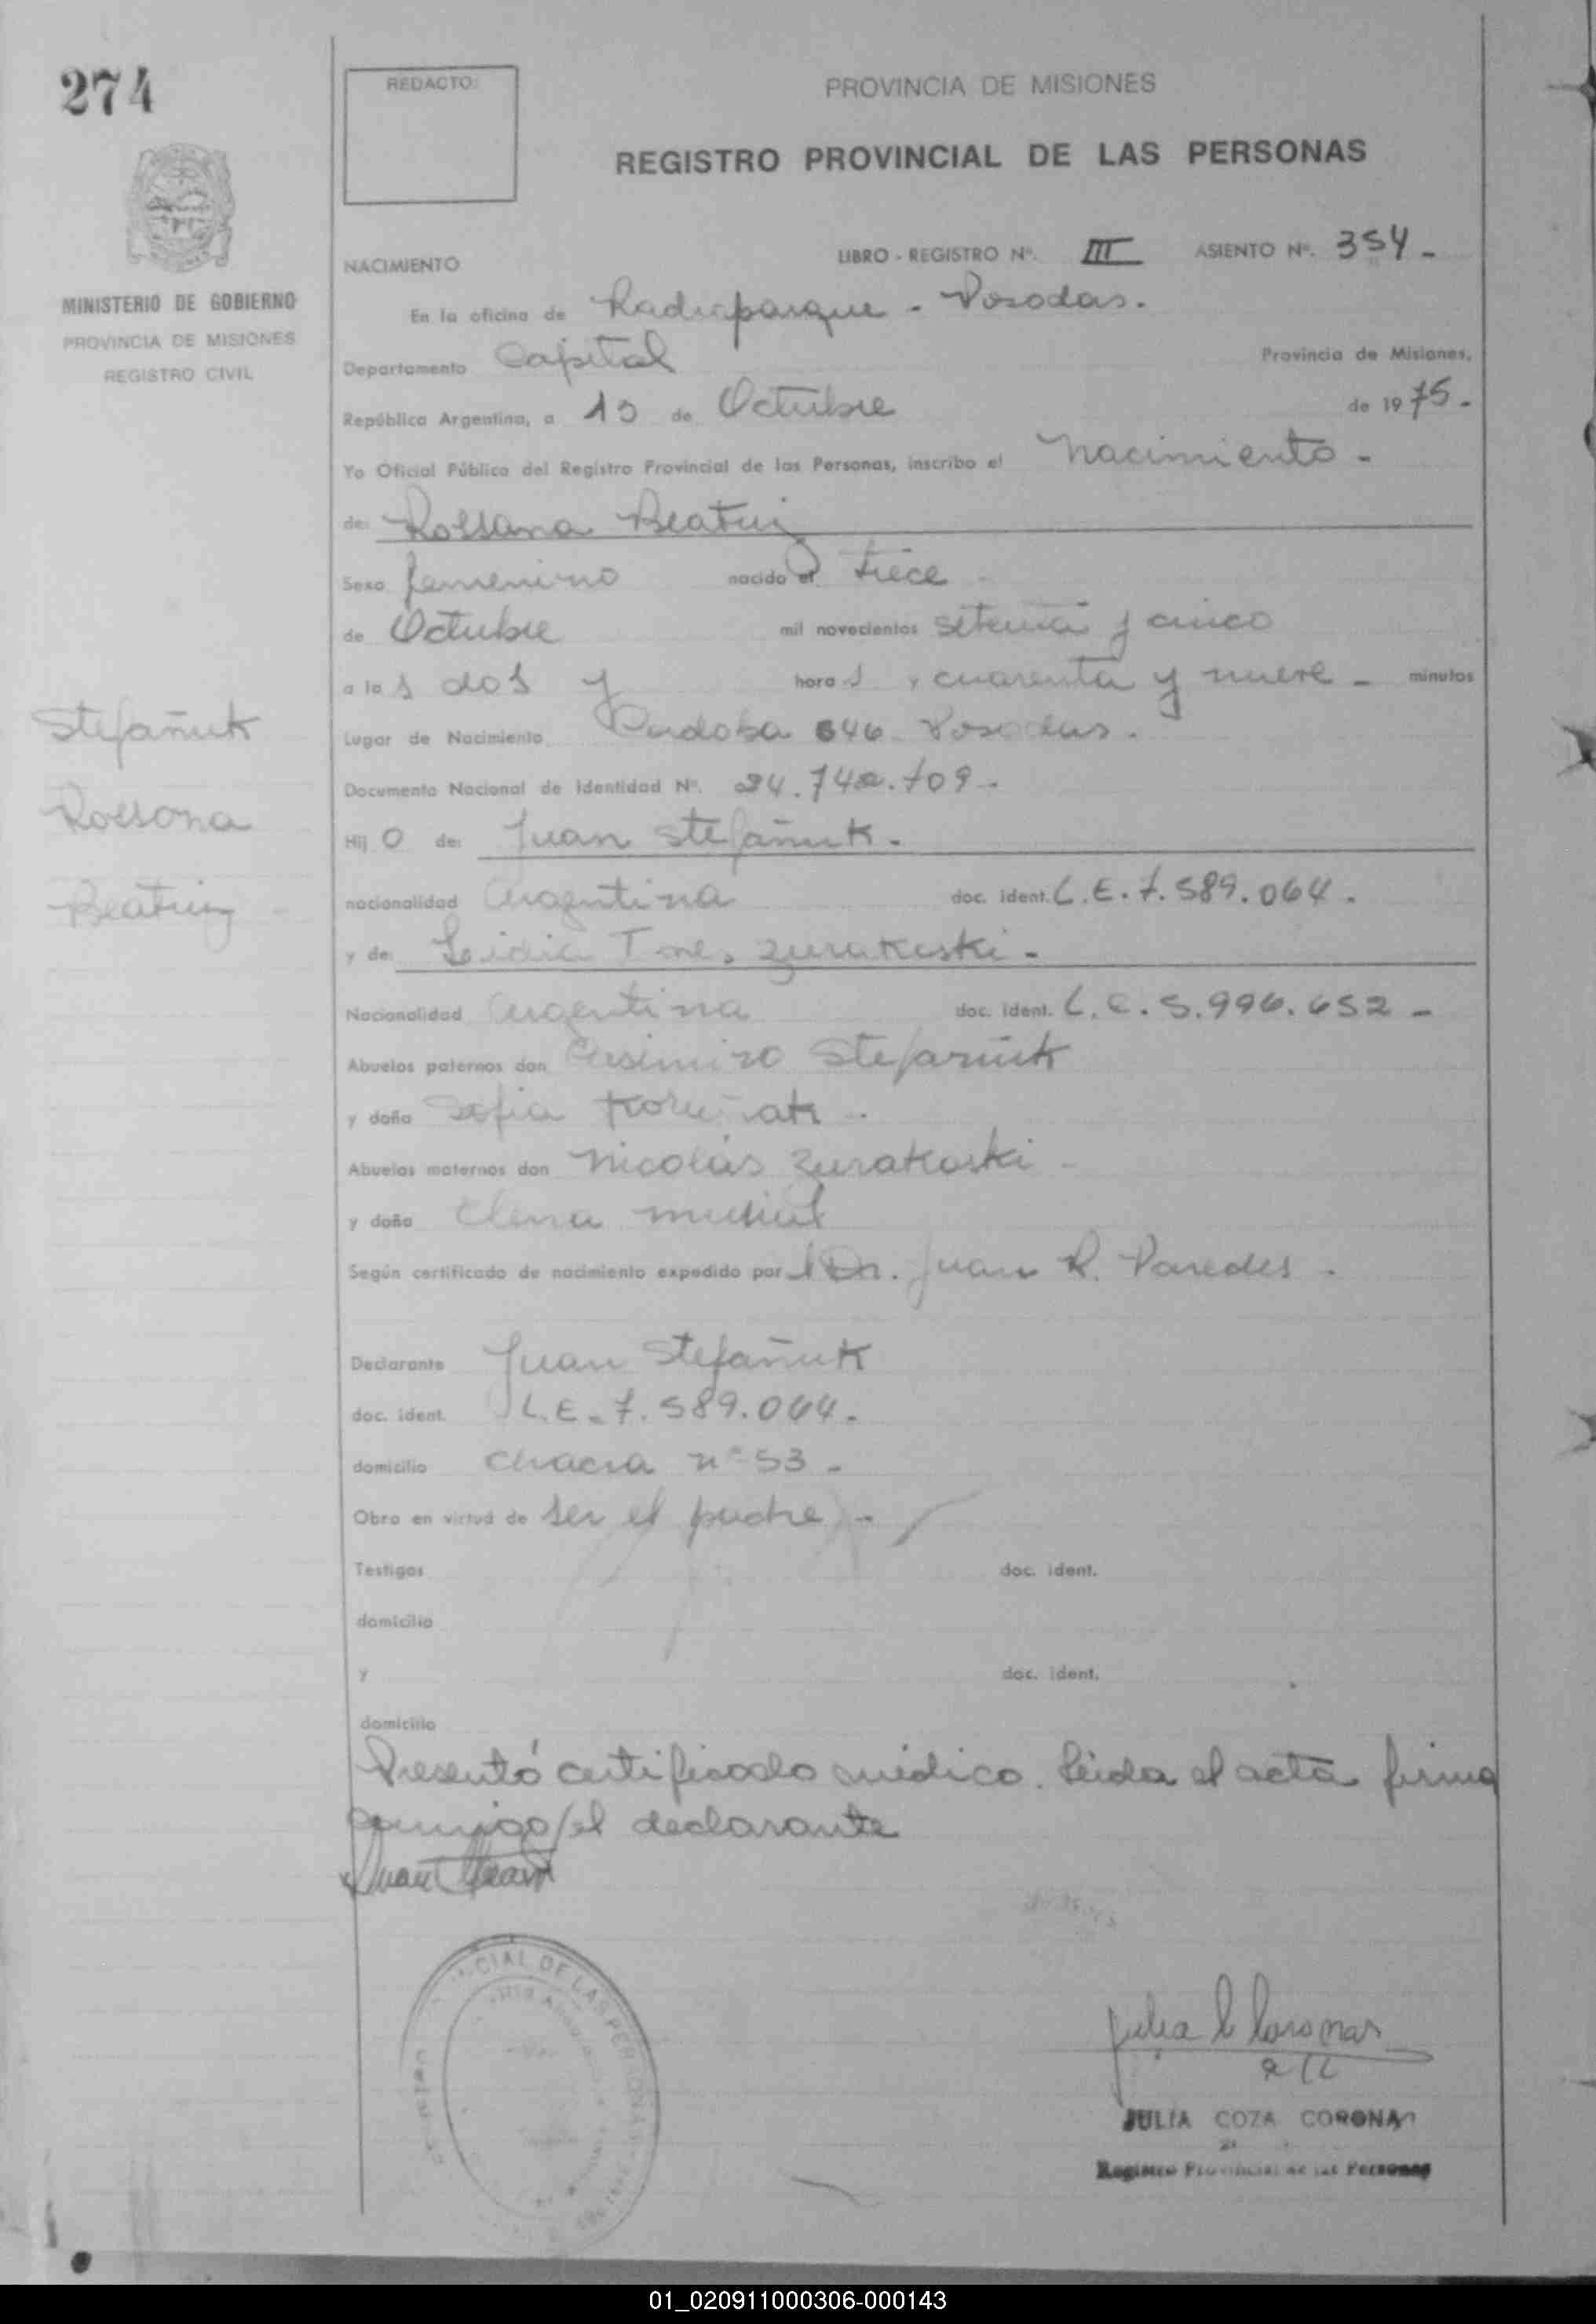 274
REDACTO:
PROVINCIA DE MISIONES
REGISTRO PROVINCIAL DE LAS PERSONAS
MINISTERIO DE GOBIERNO
PROVINCIA DE MISIONES
REGISTRO CIVIL
NACIMIENTO LIBRO - REGISTRO Nº. III ASIENTO Nº. 354 -
En la oficina de Posadas.
Departamento Capital Provincia de Misiones,
República Argentina, a de Octubre de 1975 -
Yo Oficial Público del Registro Provincial de las Personas, inscribo el Nacimiento -
de: Rossana Beatriz
Sexo femenino nacido el trece -
de Octubre mil novecientos setenta y cinco
a las dos y horas y cuarenta y nueve - minutos
Stefañuk
Rossana
Beatriz
Lugar de Nacimiento Cordoba 646 Posadas.
Documento Nacional de Identidad Nº. 24.742.709 -
Hij de: Juan Stefañuk -
nacionalidad Argentina doc. ident. L.E. 7.589.064.
y de: Zurakoski -
Nacionalidad Argentina doc. ident. L.C. 5.996.652 -
Abuelos paternos don Casimiro Stefañuk
y doña Sofia
Abuelos maternos don Nicolás Zurakoski -
y doña Elena
Según certificado de nacimiento expedido por Dr. Juan R. Paredes.
Declarante Juan Stefañuk
doc. ident. L.E. 7.589.064.
domicilio Chacra nº 53 -
Obra en virtud de ser el padre -
Testigos doc. ident.
domicilio
y doc. ident.
domicilio
Presentó certificado médico. Leida el acta firma
conmigo/el declarante
JULIA COZA CORONA
Registro Provincial de las Personas
01_020911000306-000143